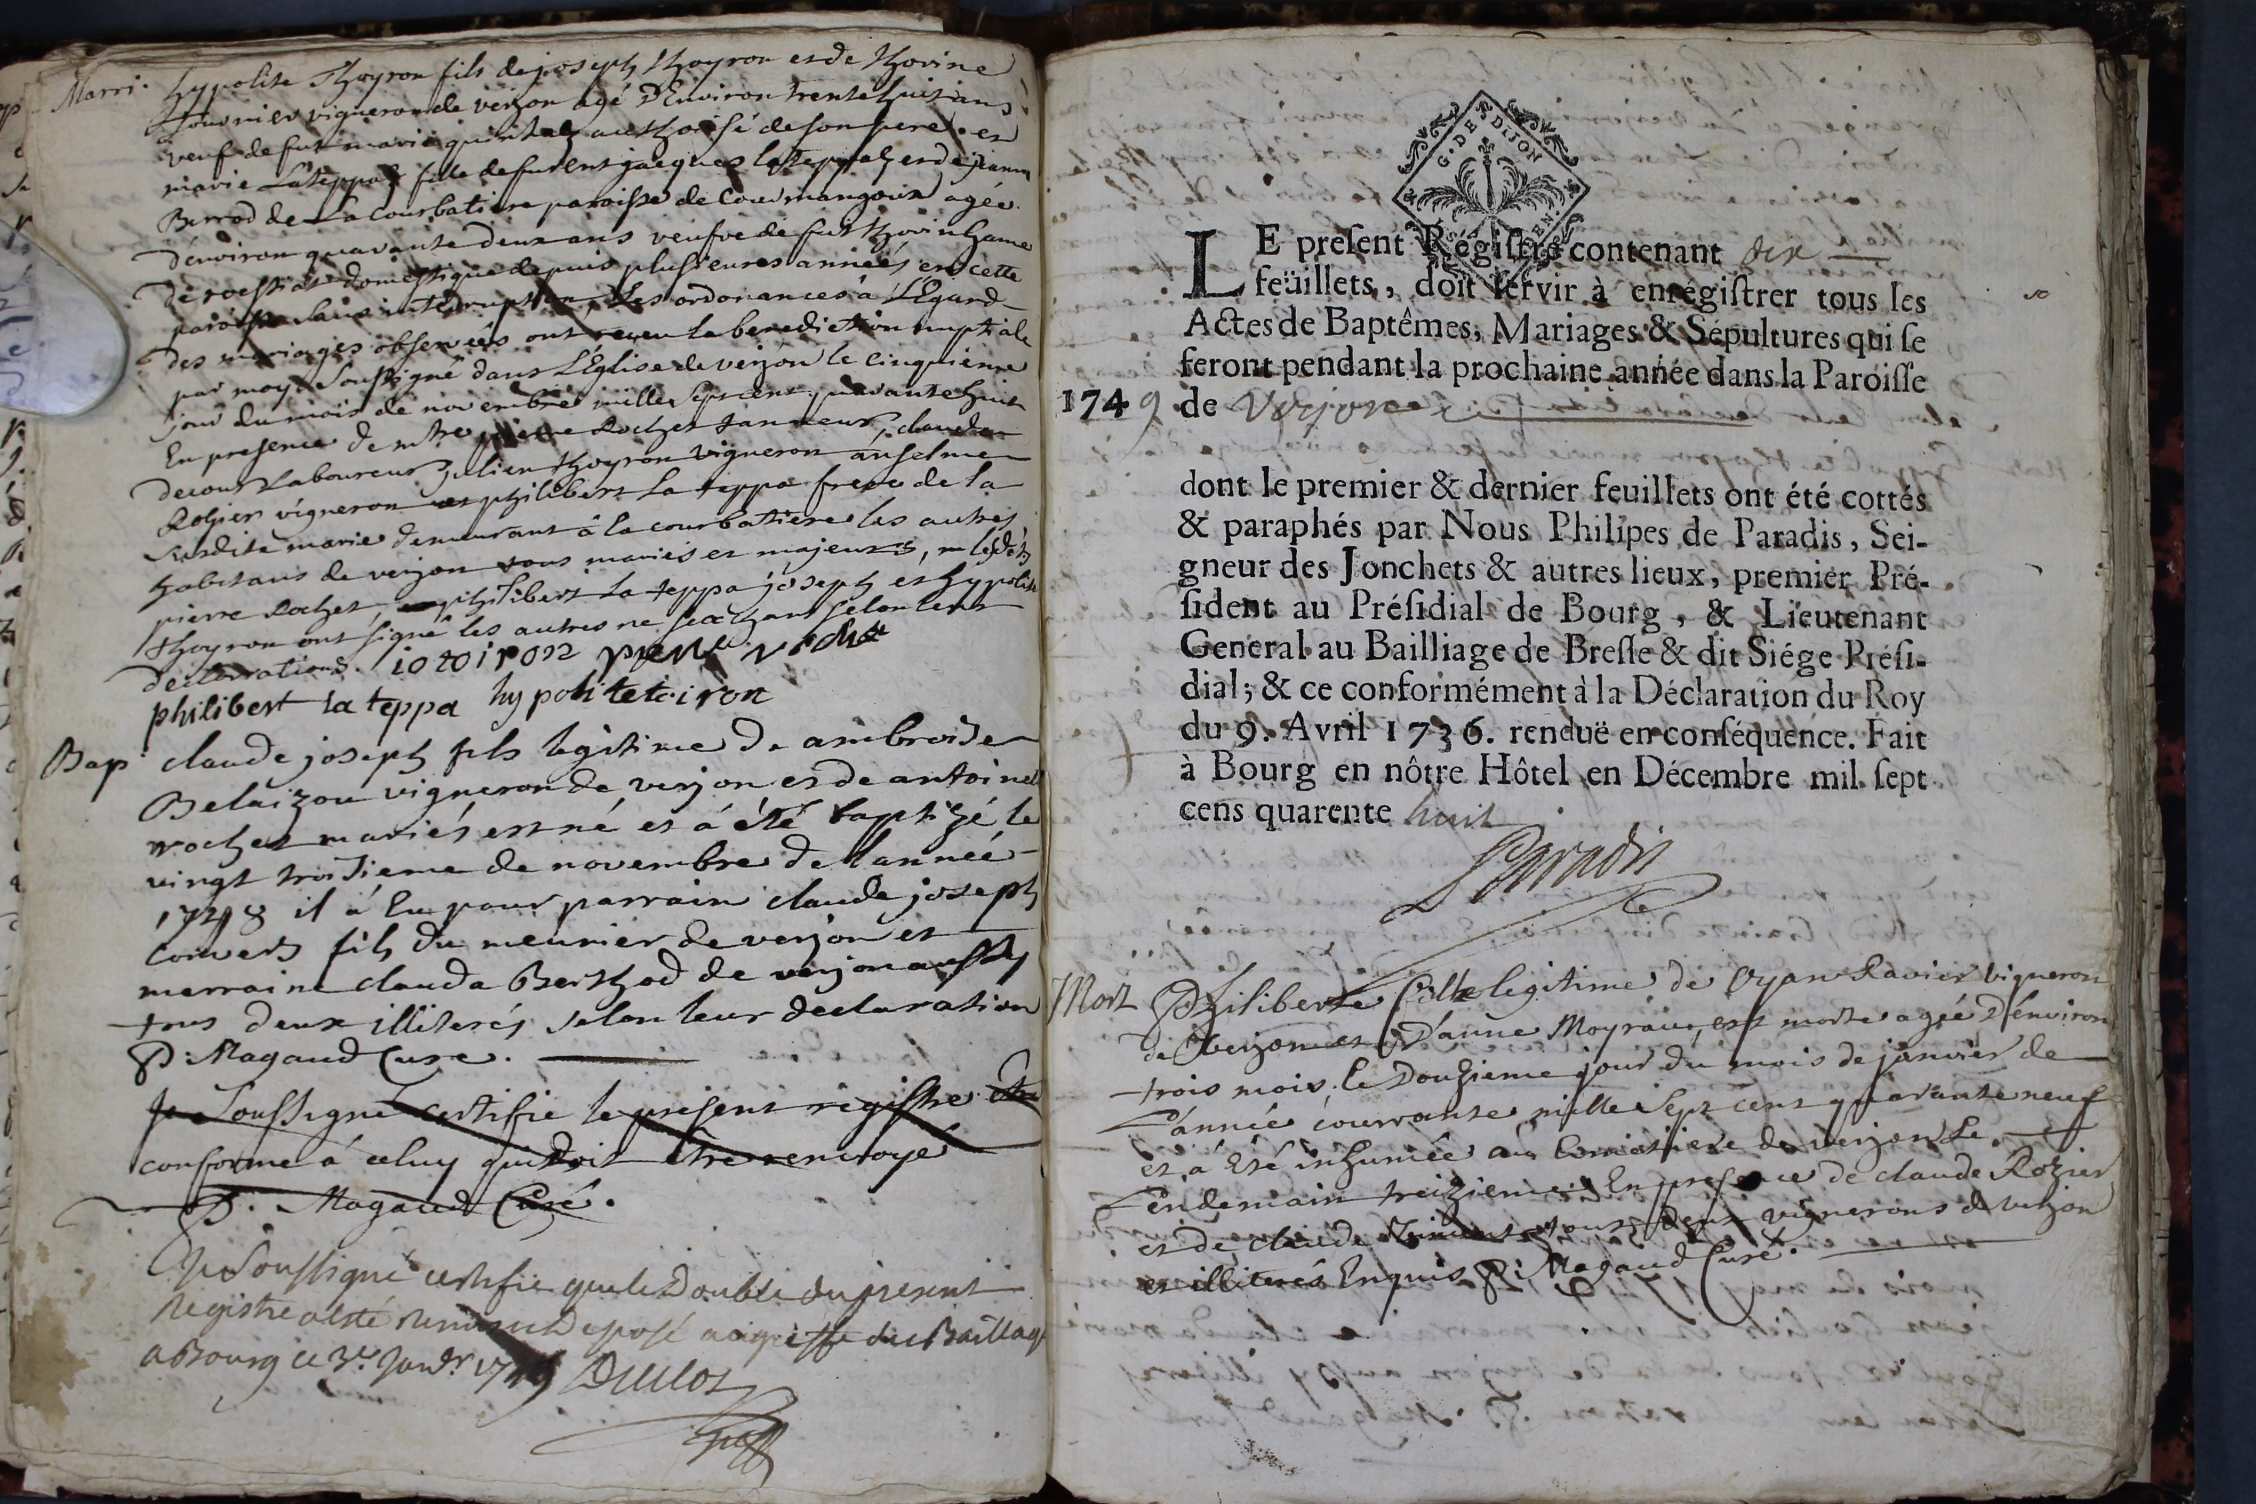 Marri. hypolite Thoyron fils de joseph thoyron et de thorine
fournier vigneron de verjon agé D'Environ trente huit ans
veuf de fut marie quintal authorisé de son pere. et
marie Lateppa fille de furent jacques lateppa et de jeanne
Berrod de La Courbatiere paroisse de Courmangoux agée
d'environ quarante deux ans veufve de fut
domestique depuis plusieures années en cette
paroisse sans interruption, Les ordonances a L'Egard
des mariages observées ont reçeu la benediction nuptiale
par moy Soussigné dans L'Eglise de verjon le Cinquieme
jour du mois de novembre mille septcent quarante huit
En presence de mtre pierre Rochet tanneur, claude
decour Laboureur, julien thoyron vigneron anselme
Rozier vigneron et philibert La teppa frere de la
susdite marie demeurant à la courbatiere les autres
habitans de verjon tous mariés et majeurs,
pierre Rochet, philibert La teppa joseph et hypolite
thoyron ont signé les autres ne scachant selon leur
declarations. io toiron pierre rochet
philibert la teppa hypolite toiron
Bap. claude joseph fils legitime de ambroise
Belaizou vigneron de verjon et de antoinet
rochet mariés est né et a été baptizé le
vingt troisieme de novembre de l'année
1748 il a Eu pour parrain claude joseph
Convers fils du meunier de verjon et
merraine clauda Berthod de verjon aussy
tous deux illiterés selon leur declaration
P. Magaud Cure.
je soussigné certifie le present registre etre
conforme a celuy qui doit etre renvoyé
P. Magaud Curé.
Je Soussigné certifie que le Double du present
Registre a esté remis et Deposé au greffe du Bailliage
a Bourg ce 3e Janvr 1749 Duclos
G. DE DIJON
LE present Régistre contenant dix
feüillets, doit servir à enrégistrer tous les
Actes de Baptêmes, Mariages & Sépultures qui se
feront pendant la prochaine année dans la Paroisse
1749 de Verjon
dont le premier & dernier feuillets ont été cottés
& paraphés par Nous Philipes de Paradis, Sei-
gneur des Jonchets & autres lieux, premier Pré-
sident au Présidial de Bourg, & Lieutenant
General au Bailliage de Bresse & dit Siége Prési-
dial; & ce conformément à la Déclaration du Roy
du 9. Avril 1736. renduë en conséquence. Fait
à Bourg en nôtre Hôtel en Décembre mil sept
cens quarente huit
Paradis
Mort Philiberte fille legitime de Oyan Ravier vigneron
de Verjon et D'anne Moyraux, est morte agée D'environ
trois mois, le Douzieme jour du mois de janvier de
L'année courrante mille Sept cent quarante neuf
et a Eté inhumée au Cimetiere de verjon Le
Lendemain treizieme En presence de claude Rozier
et de claude tous deux vignerons de verjon
et illiterés Enquis P. Magaud Curé.